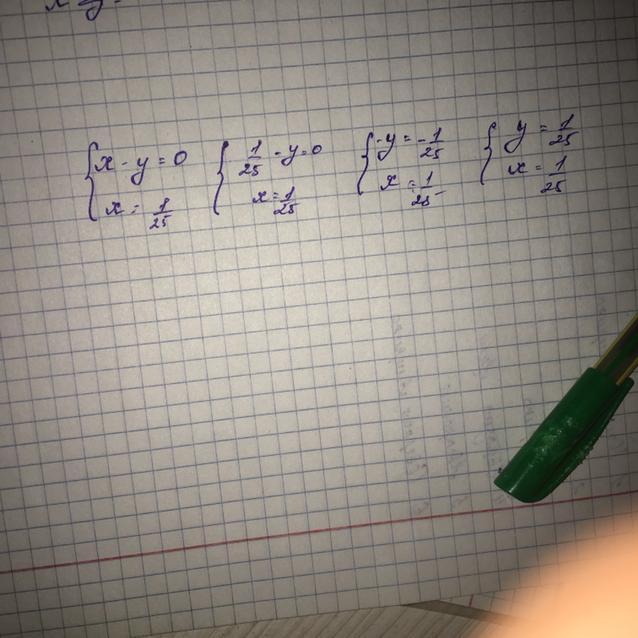 x - y = 0
x = 1/25
1/25 - y = 0
x = 1/25
-y = -1/25
x = 1/25
y = 1/25
x = 1/25